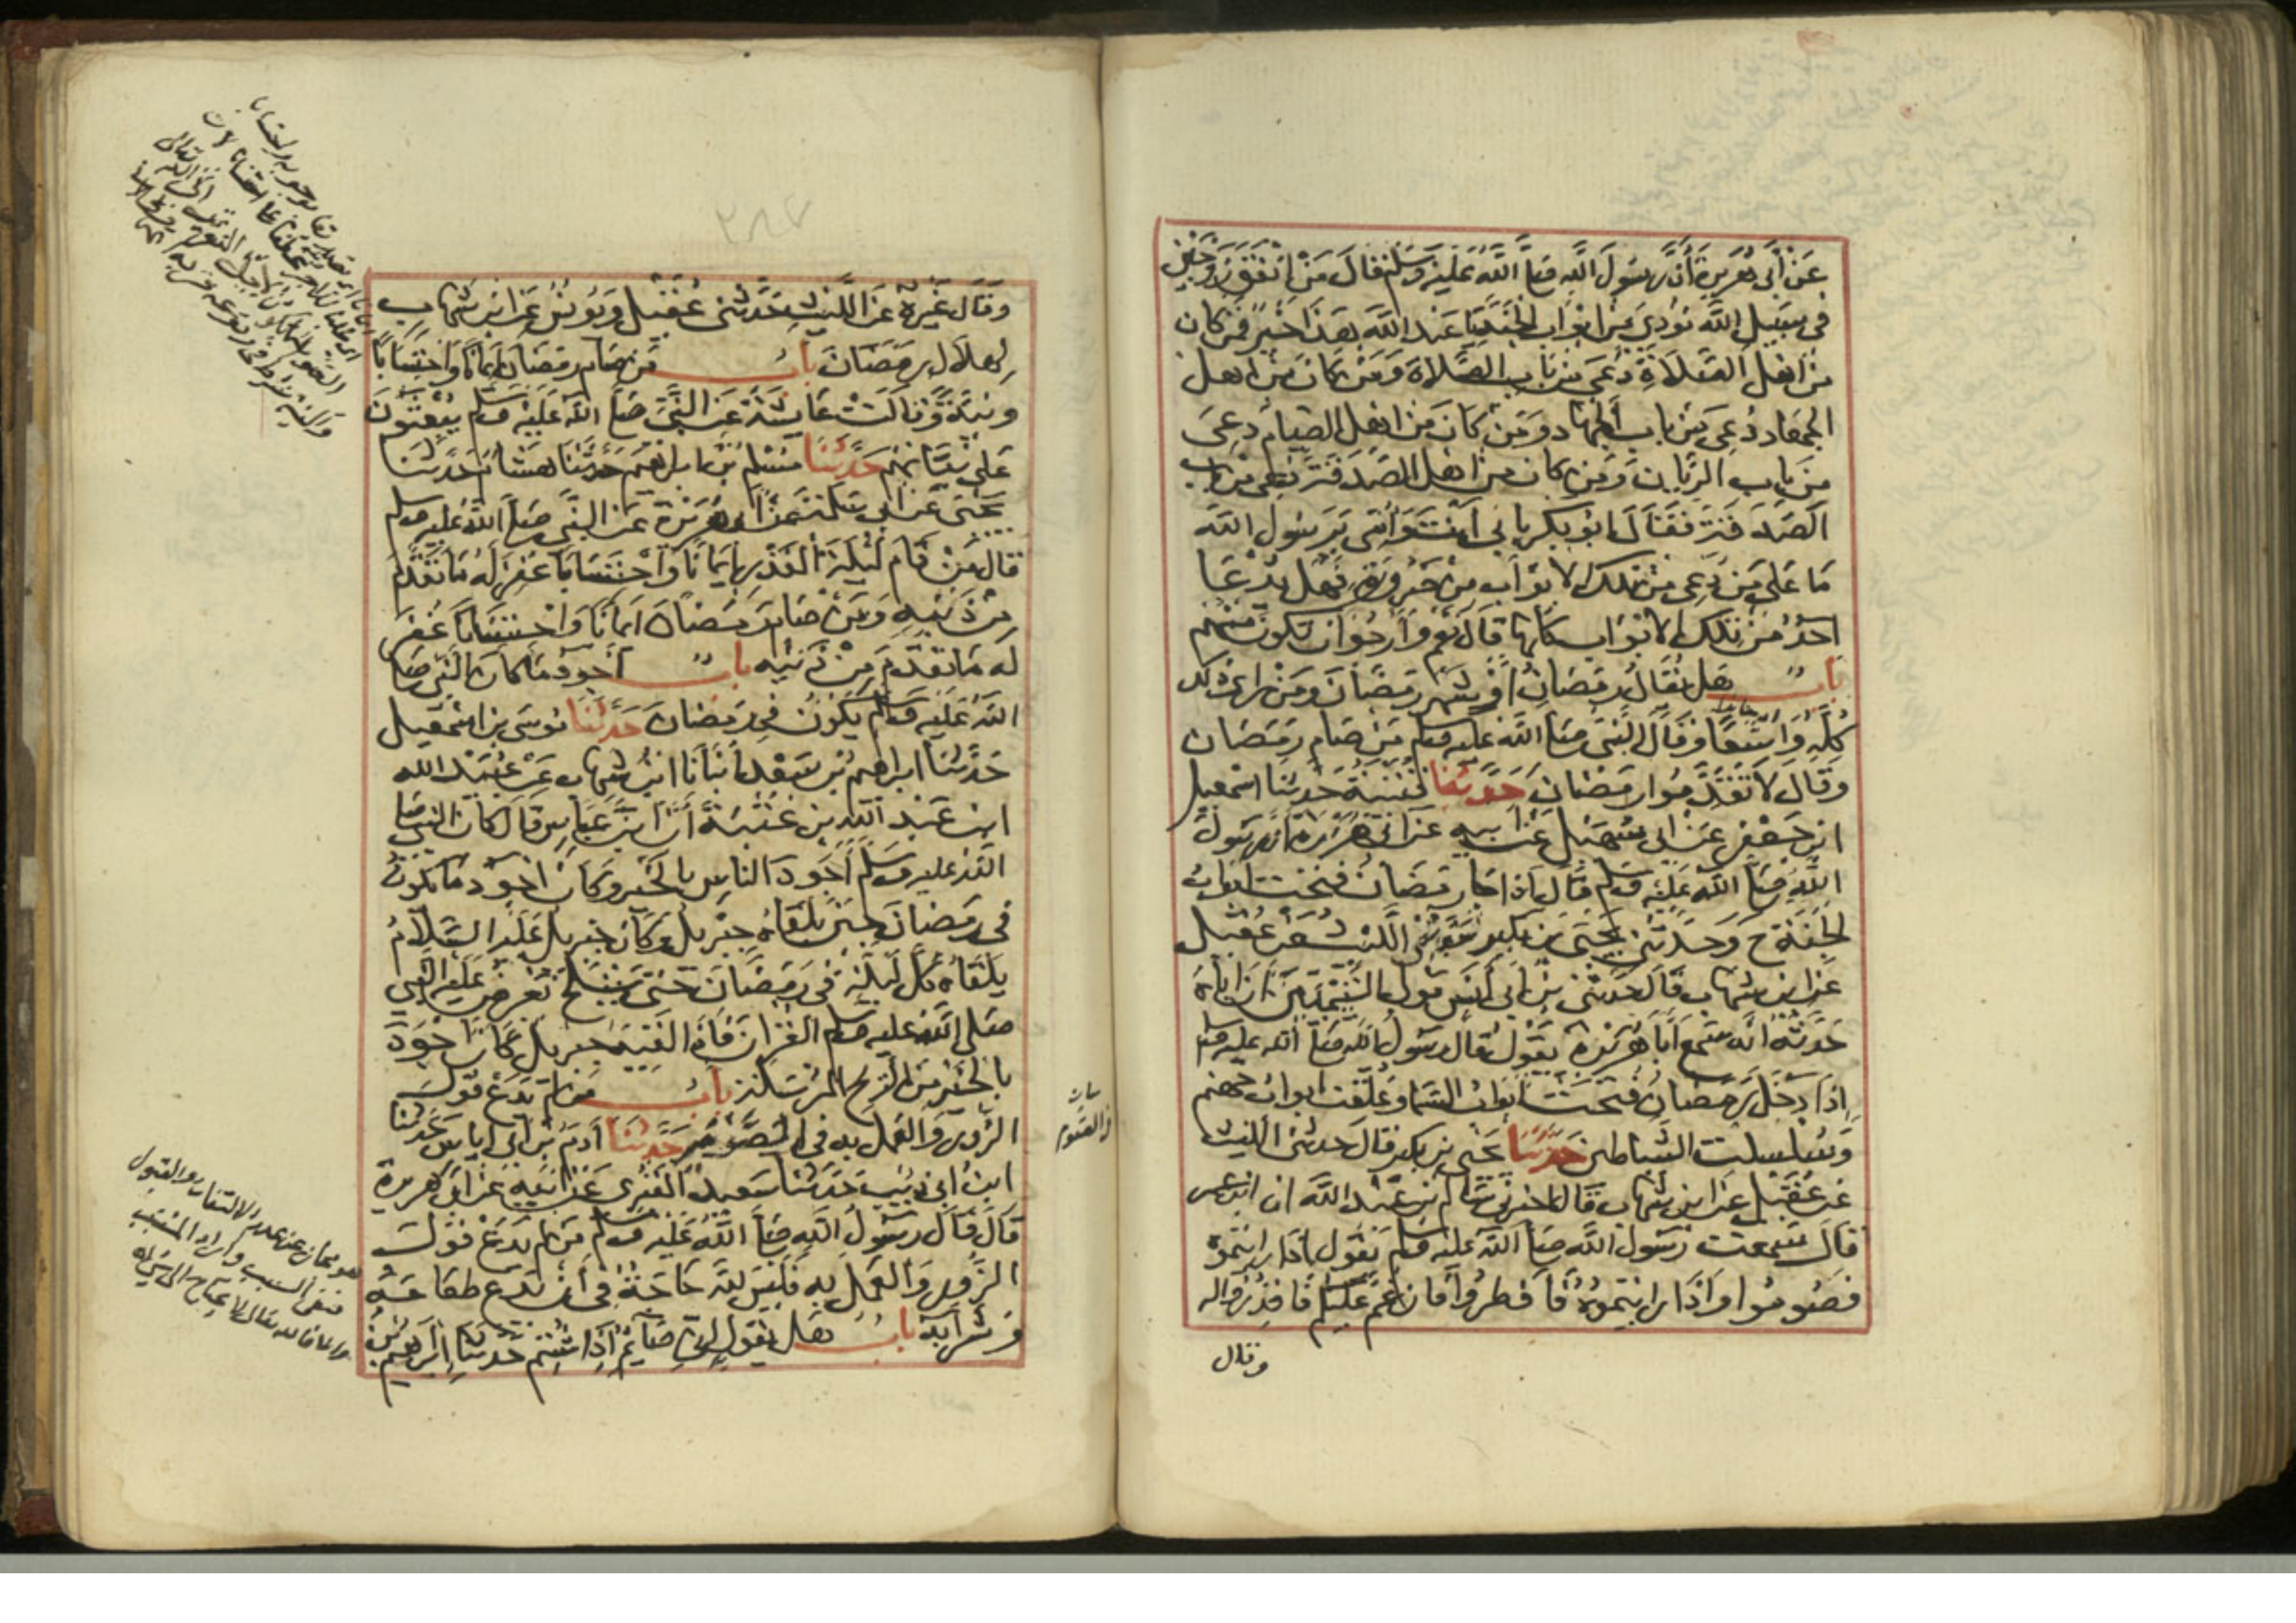 عَنْ أَبِي هُرَيْرَةَ أَنَّ رَسُولَ اللَّهِ صَلَّى اللَّهُ عَلَيْهِ وَسَلَّمَ قَالَ مَنْ أَنْفَقَ زَوْجَيْنِ
في سَبِيلِ اللَّهِ نُودِيَ مِنْ أَبْوَابِ الْجَنَّةِ يَا عَبْدَ اللَّهِ هَذَا خَيْرٌ فَمَنْ كَانَ
مِنْ أَهْلِ الصَّلَاةِ دُعِيَ مِنْ بَابِ الصَّلَاةِ وَمَنْ كَانَ مِنْ أهل
الجهَادِ دُعِيَ مِنْ بَابِ الْجِهَادِ وَمَنْ كَانَ مِنْ أَهْلِ الصِّيَامِ دُعِيَ
مِنْ بَابِ الرَّيَّانِ وَمَنْ كَانَ مِنْ أَهْلِ الصَّدَقَةِ دُعِيَ مِنْ بَابِ
الصَّدَقَةِ فَقَالَ أَبُو بَكْرٍ بِأَبِي أَنْتَ وَأُمِّي يَا رَسُولَ اللَّهِ
مَا عَلَى مَنْ دُعِيَ مِنْ تِلْكَ الْأَبْوَابِ مِنْ ضَرُورَةٍ فَهَلْ يُدْعَا
أَحَدٌ مِنْ تِلْكَ الْأَبْوَابِ كُلِّهَا قَالَ نَعَمْ وَأَرْجُو أَنْ تَكُونَ مِنْهُمْ
بَابٌ هَلْ يُقَالُ رَمَضَانُ أَوْ شَهْرُ رَمَضَانَ وَمَنْ رَأَى ذلك
كُلَّهُ وَاسِعًا وَقَالَ النَّبِيُّ صَلَّى اللَّهُ عَلَيْهِ وَسَلَّمَ مَنْ صَامَ رَمَضَانَ
وَقَالَ لَا تَقَدَّمُوا رَمَضَانَ حَدَّثَنَا قُتَيْبَةُ حَدَّثَنَا اسْمعيل
ابن جَعْفَرٍ عَنْ أَبِي سُهَيْلٍ عَنْ أَبِيهِ عَنْ أَبِي هُرَيْرَةَ أَنَّ رَسُولَ
اللَّهِ صَلَّى اللَّهُ عَلَيْهِ وَسَلَّمَ قَالَ إِذَا جَاءَ رَمَضَانُ فُتِحَتْ أَبْوَابُ
الْجَنَّةِ ح وَحَدَّثَنِي يَحْيَى بْنُ بُكَيْرٍ حَدَّثَنِي اللَّيْثُ عَنْ عُقَيْلٍ
عَنِ ابْنِ شِهَابٍ قَالَ حَدَّثَنِي بْنُ أَبِي أَنَسٍ مَوْلَى التَّيْمِيِّينَ أَنَّ أَبَاهُ
حَدَّثَهُ أَنَّهُ سَمِعَ أَبَا هُرَيْرَةَ يَقُولُ قَالَ رَسُولُ اللَّهِ صَلَّى اللَّهُ عَلَيْهِ وَسَلَّمَ
إِذَا دَخَلَ رَمَضَانُ فُتِحَتْ أَبْوَابُ السَّمَاءِ وَغُلِّقَتْ أَبْوَابُ جَهَنَّمَ
وَسُلْسِلَتِ الشَّيَاطِينُ حَدَّثَنَا يَحْيَى بْنُ بُكَيْرٍ قَالَ حَدَّثَنِي اللَّيْثُ
عَنْ عُقَيْلٍ عَنِ ابْنِ شِهَابٍ قَالَ أَخْبَرَنِي سَالِمُ بْنُ عَبْدِ اللَّهِ أَنَّ ابْنَ عُمَرَ
قَالَ سَمِعْتُ رَسُولَ اللَّهِ صَلَّى اللَّهُ عَلَيْهِ وَسَلَّمَ يَقُولُ إِذَا رَأَيْتُمُوهُ
فَصُومُوا وَإِذَا رَأَيْتُمُوهُ فَأَفْطِرُوا فَإِنْ غُمَّ عَلَيْكُمْ فَاقْدُرُوا لَهُ
وقال
٢٨٧
وَقَالَ غَيْرُهُ عَنِ اللَّيْثِ حَدَّثَنِي عُقَيْلٌ وَيُونُسُ عَنِ ابْنِ شِهَابٍ
لِهِلَالِ رَمَضَانَ بَابُ مَنْ صَامَ رَمَضَانَ إِيمَانًا وَاحْتِسَابًا
وَنِيَّةً وَقَالَتْ عَائِشَةُ عَنِ النَّبِيِّ صَلَّى اللَّهُ عَلَيْهِ وَسَلَّمَ يُبْعَثُونَ
عَلَى نِيَّاتِهِمْ حَدَّثَنَا مُسْلِمُ بْنُ إِبْرَاهِيمَ حَدَّثَنَا هِشَامٌ حَدَّثَنَا
يَحْيَى عَنْ أَبِي سَلَمَةَ عَنْ أَبِي هُرَيْرَةَ عَنِ النَّبِيِّ صَلَّى اللَّهُ عَلَيْهِ وَسَلَّمَ
قَالَ مَنْ قَامَ لَيْلَةَ الْقَدْرِ إِيمَانًا وَاحْتِسَابًا غُفِرَ لَهُ مَا تَقَدَّمَ
مِنْ ذَنْبِهِ وَمَنْ صَامَ رَمَضَانَ إِيمَانًا وَاحْتِسَابًا غُفِرَ
لَهُ مَا تَقَدَّمَ مِنْ ذَنْبِهِ بَابٌ أَجْوَدُ مَا كَانَ النَّبِيُّ صَلَّى
اللَّهُ عَلَيْهِ وَسَلَّمَ يَكُونُ فِي رَمَضَانَ حَدَّثَنَا مُوسَى بْنُ إسْمعيل
حَدَّثَنَا إبراهيم بْنُ سَعْدٍ أَنْبَأَنَا ابْنُ شِهَابٍ عَنْ عُبَيْدِ اللَّهِ
ابْنِ عَبْدِ اللَّهِ بْنِ عُتْبَةَ أَنَّ ابْنَ عَبَّاسٍ قَالَ كَانَ النَّبِيُّ صَلَّى
اللَّهُ عَلَيْهِ وَسَلَّمَ أَجْوَدَ النَّاسِ بِالْخَيْرِ وَكَانَ أَجْوَدُ مَا يَكُونُ
فِي رَمَضَانَ حِينَ يَلْقَاهُ جِبْرِيلُ وَكَانَ جِبْرِيلُ عَلَيْهِ السَّلَامُ
يَلْقَاهُ كُلَّ لَيْلَةٍ فِي رَمَضَانَ حَتَّى يَنْسَلِخَ يَعْرِضُ عَلَيْهِ النَّبِيُّ
صَلَّى اللَّهُ عَلَيْهِ وَسَلَّمَ الْقُرْآنَ فَإِذَا لَقِيَهُ جِبْرِيلُ كَانَ أَجْوَدَ
بِالْخَيْرِ مِنَ الرِّيحِ الْمُرْسَلَةِ بَابُ مَنْ لَمْ يَدَعْ قَوْلَ
الزُّورِ وَالْعَمَلَ بِهِ فِي الصَّوْمِ حَدَّثَنَا آدَمُ بْنُ أَبِي إِيَاسٍ حَدَّثَنَا
ابْنُ أَبِي ذِئْبٍ حَدَّثَنَا سَعِيدٌ الْمَقْبُرِيُّ عَنْ أَبِيهِ عَنْ أَبِي هُرَيْرَةَ
قَالَ قَالَ رَسُولُ اللَّهِ صَلَّى اللَّهُ عَلَيْهِ وَسَلَّمَ مَنْ لَمْ يَدَعْ قَوْلَ
الزُّورِ وَالْعَمَلَ بِهِ فَلَيْسَ لِلَّهِ حَاجَةٌ فِي أَنْ يَدَعَ طَعَامَهُ
وَشَرَابَهُ بَابٌ هَلْ يَقُولُ إِنِّي صَائِمٌ إِذَا شُتِمَ حَدَّثَنَا إِبْرَاهِيمُ بْنُ